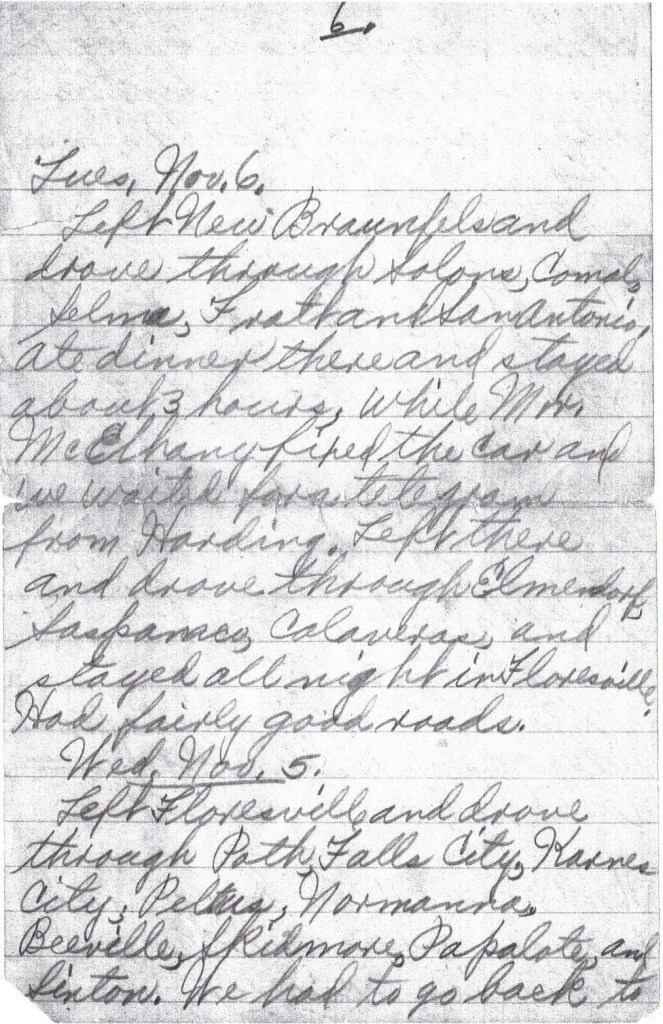 6.
Tues, Nov. 6.
Left New Braunfels and
drove through Solons, Comal,
Selma, Fratt and San Antonio,
ate dinner there and stayed
about 3 hours, while Mr.
McElhany fixed the car and
we waited for a telegram
from Harding. Left there
and drove through Elmendorf,
Saspamco, Calaveras, and
stayed all night in Floresville.
Had fairly good roads.
Wed, Nov. 5.
Left Floresville and drove
through Poth, Falls City, Karnes
City, Pettus, Normanna,
Beeville, Skidmore, Papalote, and
Sinton. We had to go back to